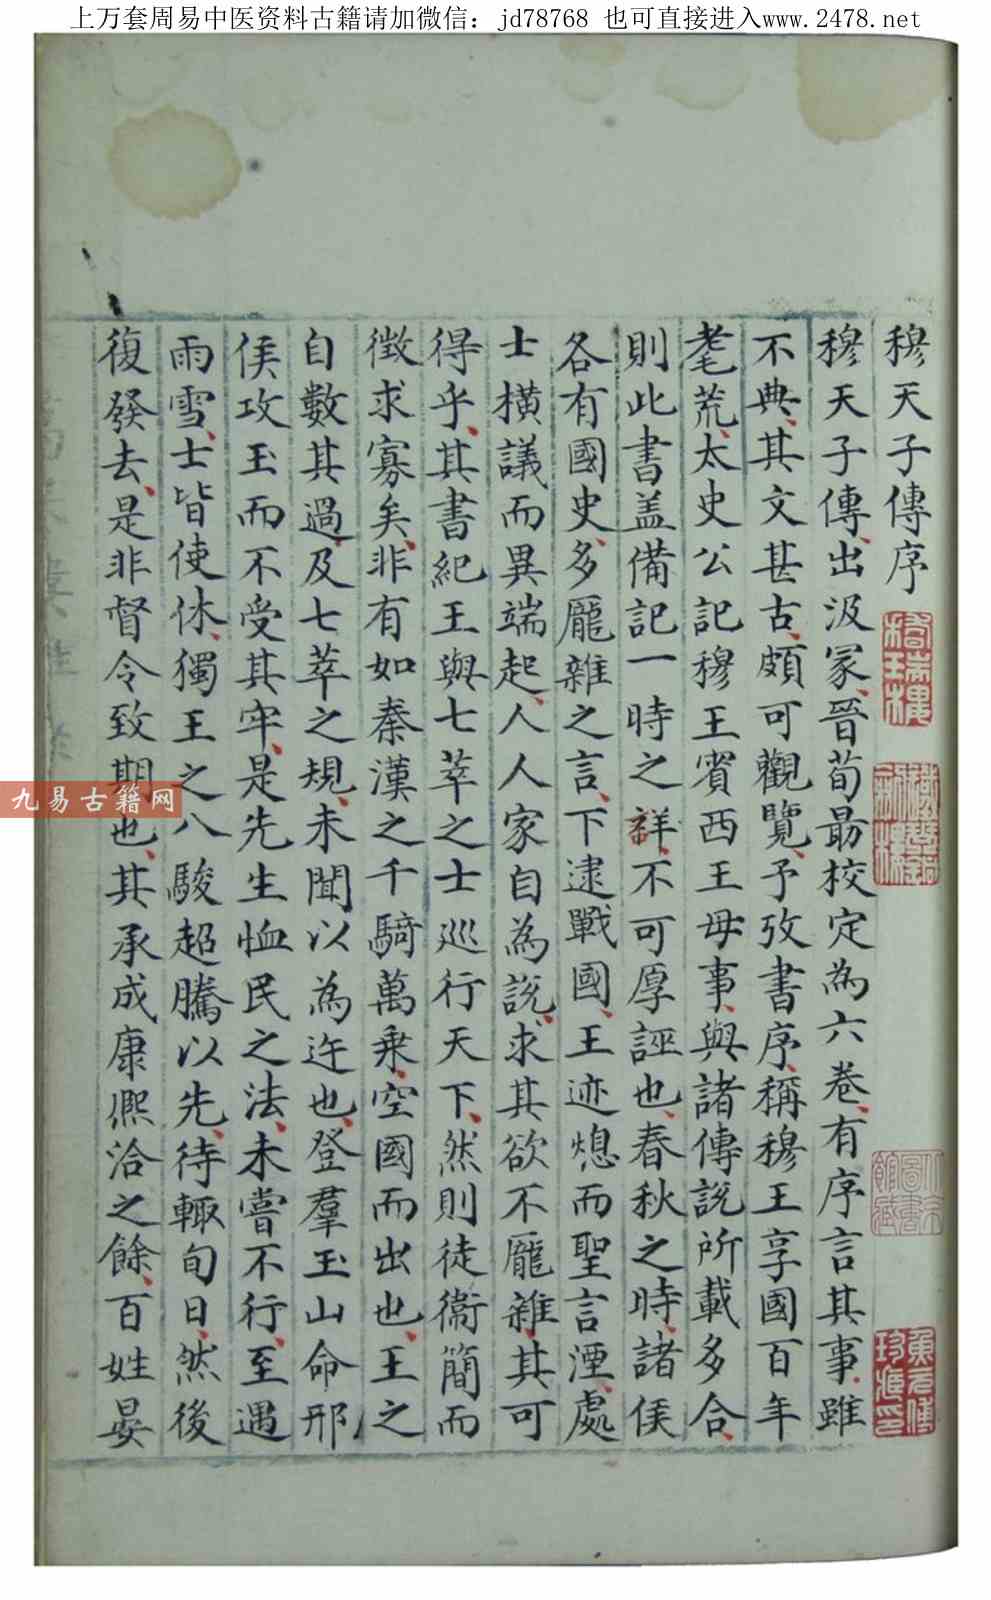 上万套周易中医资料古籍请加微信：jd78768 也可直接进入www.2478.net
穆天子傳序
穆天子傳出汲冢晉荀勗校定為六卷有序言其事雖
不典其文甚古頗可觀覽予攷書序稱穆王享國百年
耄荒太史公記穆王賓西王母事與諸傳說所載多合
則此書盖備記一時之詳不可厚誣也春秋之時諸侯
各有國史多龐雜之言下逮戰國王迹熄而聖言湮處
士橫議而異端起人人家自為說求其欲不龐雜其可
得乎其書紀王與七萃之士巡行天下然則徒衞簡而
徵求寡矣非有如秦漢之千騎萬乘空國而出也王之
自數其過及七萃之規未聞以為迕也登羣玉山命邢
侯攻玉而不受其牢是先生恤民之法未嘗不行至遇
雨雪士皆使休獨王之八駿超騰以先待輙旬日然後
復發去是非督令致期也其承成康熈洽之餘百姓晏
九易古籍网